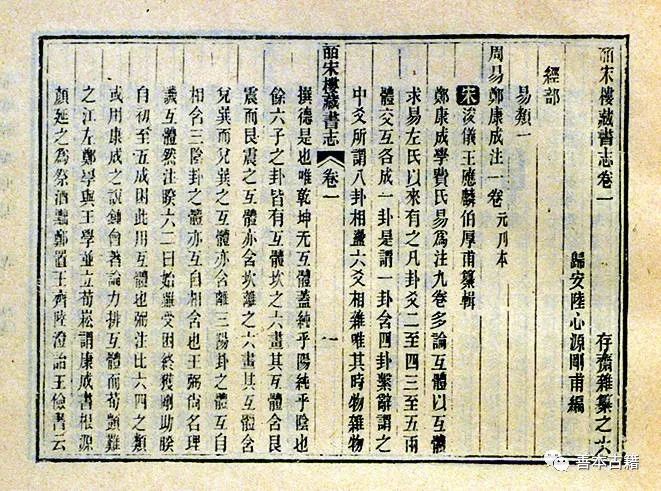 皕宋樓藏書志卷一
存齋雜纂之六
歸安陸心源剛甫編
經部
易類一
周易鄭康成注一卷 元刋本
宋浚儀王應麟伯厚甫纂輯
鄭康成學費氏易爲注九卷多論互體以互體
求易左氏以來有之凡卦爻二至四三至五兩
體交互各成一卦是謂一卦含四卦繫辭謂之
中爻所謂八卦相盪六爻相雜唯其時物雜物
皕宋樓藏書志 卷一
一
撰德是也唯乾坤无互體蓋純乎陽純乎陰也
餘六子之卦皆有互體坎之六畫其互體含艮
震而艮震之互體亦含坎離之六畫其互體含
兌巽而兌巽之互體亦含離三陽卦之體互自
相含三陰卦之體亦互自相含也王弼尚名理
譏互體然注睽六二曰始雖受困終獲剛助睽
自初至五成困此用互體也弼注比六四之類
或用康成之說鍾會著論力排互體而荀顗難
之江左鄭學與王學並立荀崧謂康成書根源
顏延之爲祭酒黜鄭置王齊陸澄詒王儉書云
善本古籍